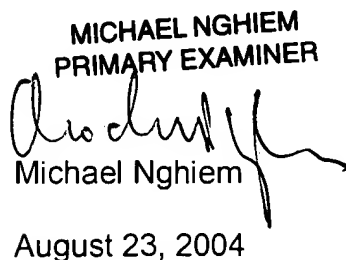 MICHAEL NGHIEM
PRIMARY EXAMINER
Michael Nghiem
August 23, 2004